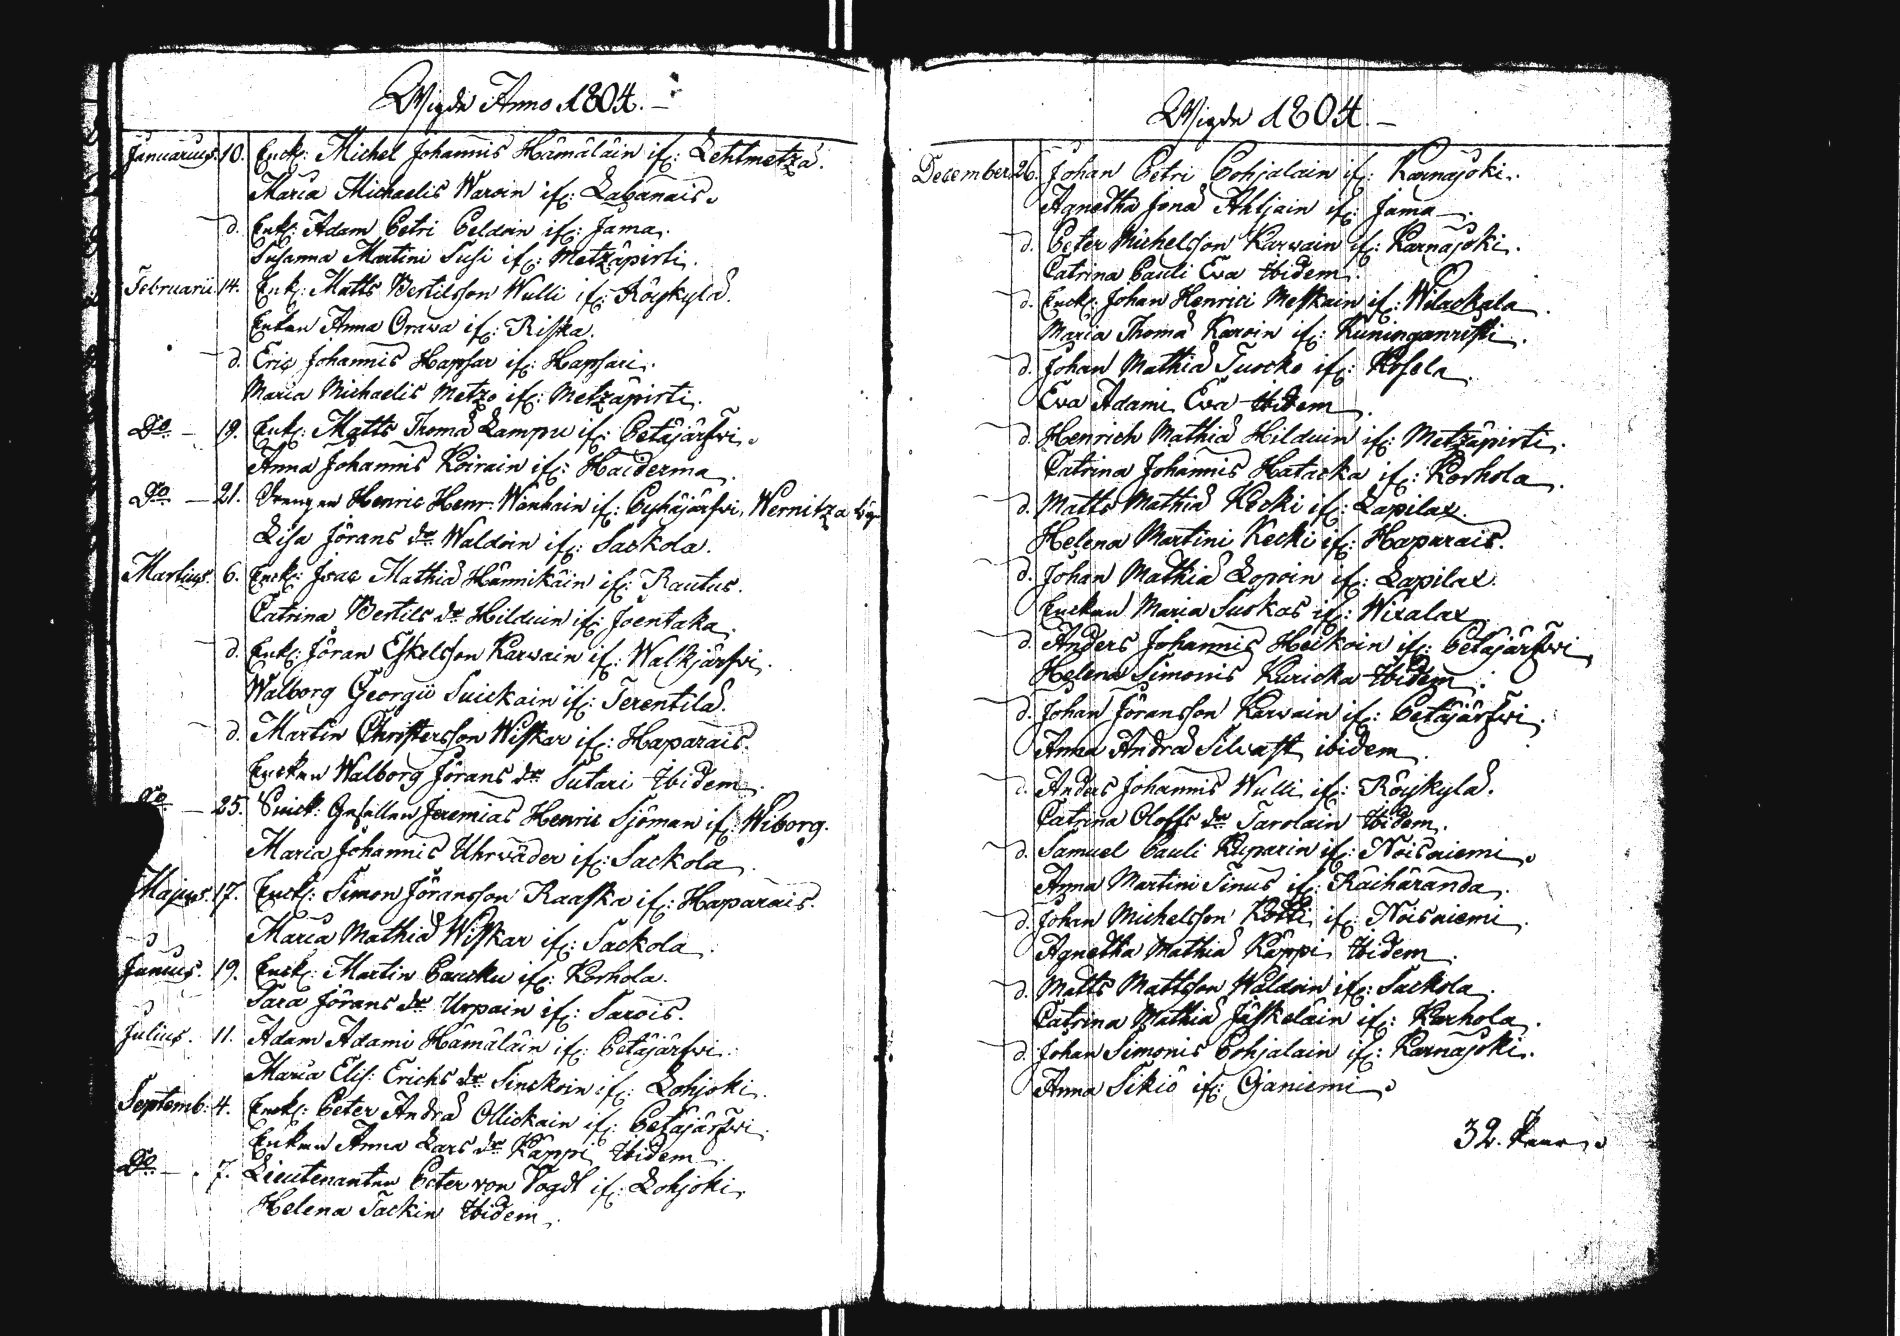 Wigde Anno 1804.
Januarius. 10. Enck: Michel Johannis Hämäläin if: Lehtmetza.
Maria Michaelis Waroin if: Labanais.
d. Enk: Adam Petri Peldoin if: Jama.
Susanna Martini Susi if: Metzäpirti.
Februarii. 14. Enk: Matts Bertilsson Wulli if: Röijkylä.
Enkan Anna Orawa if: Riska.
d. Eric Johannis Hapsar if: Hapsari.
Maria Michaelis Metzo if: Metzäpirti.
Do — 19. Enk: Matts Thomæ Lampu if: Petäjärfwi.
Anna Johannis Koirain if: Haiderma.
Do — 21. Drengen Henric Henr: Wanhain if: Pyhäjärfwi, Wernitza
Lisa Jörans dr Waldoin if: Sackola.
Martius. 6. Enck: Isac Mathiæ Hännikäin if: Rautus.
Catrina Bertils dr Hilduin if: Joentaka.
d. Enk: Jöran Eskelsson Karwain if: Walkjärfwi.
Walborg Georgii Suickain if: Terentilä.
d. Martin Christersson Wiskar if: Haparais.
Enckan Walborg Jörans dr Sutari Ibidem.
Do — 25. Snick: Gesellen Jeremias Henric Sjöman if: Wiborg.
Maria Johannis Uhrwäder if: Sackola.
Majus. 17. Enck: Simon Jöransson Raaska if: Haparais.
Maria Mathiæ Wiskar if: Sackola.
Junius. 19. Enck: Martin Paasku if: Korhola.
Sara Jörans dr Urpain if: Sarois.
Julius. 11. Adam Adami Hämäläin if: Petäjärfwi.
Maria Elis: Erichs dr Sinckoin if: Lohjoki.
Septemb: 4. Enck: Peter Andræ Ollickain if: Petäjärfwi.
Enkan Anna Lars dr Käppi Ibidem.
Do — 7. Lieutenanten Peter von Vogdt if: Lohjoki.
Helena Tackin Ibidem.
Wigde 1804.
December. 26. Johan Petri Pohjalain if: Karnajoki.
Agnetha Jonæ Ahljain if: Jama.
d. Peter Michelsson Karwain if: Karnajoki.
Catrina Pauli Eva Ibidem.
d. Enck: Johan Henrici Meskain if: Wilackala.
Maria Thomæ Karoin if: Kuninganristi.
d. Johan Mathiæ Tuocko if: Kosela.
Eva Adami Eva Ibidem.
d. Henrich Mathiæ Hilduin if: Metzäpirti.
Catrina Johannis Hatacka if: Korhola.
d. Matts Mathiæ Kecki if: Lapilax.
Helena Martini Kecki if: Haparais.
d. Johan Mathiæ Lopoin if: Lapilax.
Enckan Maria Suokas if: Wixalax.
d. Anders Johannis Heickoin if: Petäjärfwi.
Helena Simonis Kuricka Ibidem.
d. Johan Jöransson Karwain if: Petäjärfwi.
Anna Andræ Silvast ibidem.
d. Anders Johannis Wulli if: Röijkylä.
Catrina Oloffs dr Tarolain Ibidem.
d. Samuel Pauli Kuparin if: Noisniemi.
Anna Martini Sinus if: Raiharanda.
d. Johan Michelsson Kotti if: Noisniemi.
Agnetha Mathiæ Käppi Ibidem.
d. Matts Mattsson Waldoin if: Sackola.
Catrina Mathiæ Jäskeläin if: Karhola.
d. Johan Simonis Pohjalain if: Karnajoki.
Anna Sikiö if: Ojaniemi.
32. Paar.